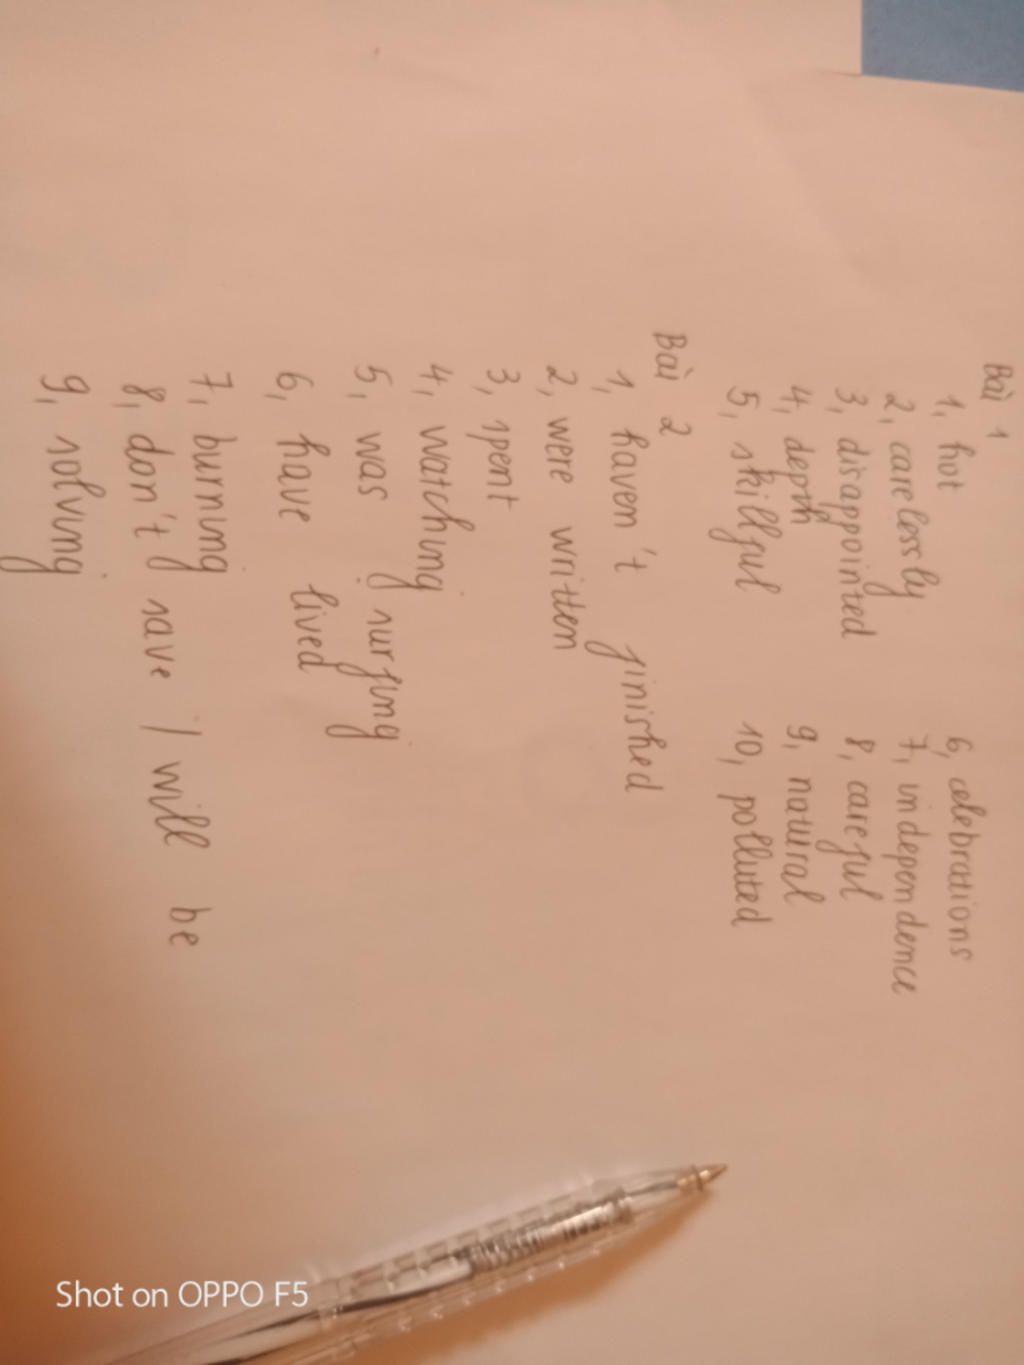 Bài 1
1, hot
2, carelessly
3, disappointed
4, depth
5, skillful
6, celebrations
7, independence
8, careful
9, natural
10, polluted
Bài 2
1, haven't finished
2, were written
3, spent
4, watching
5, was surfing
6, have lived
7, burning
8, don't save / will be
9, solving
Shot on OPPO F5